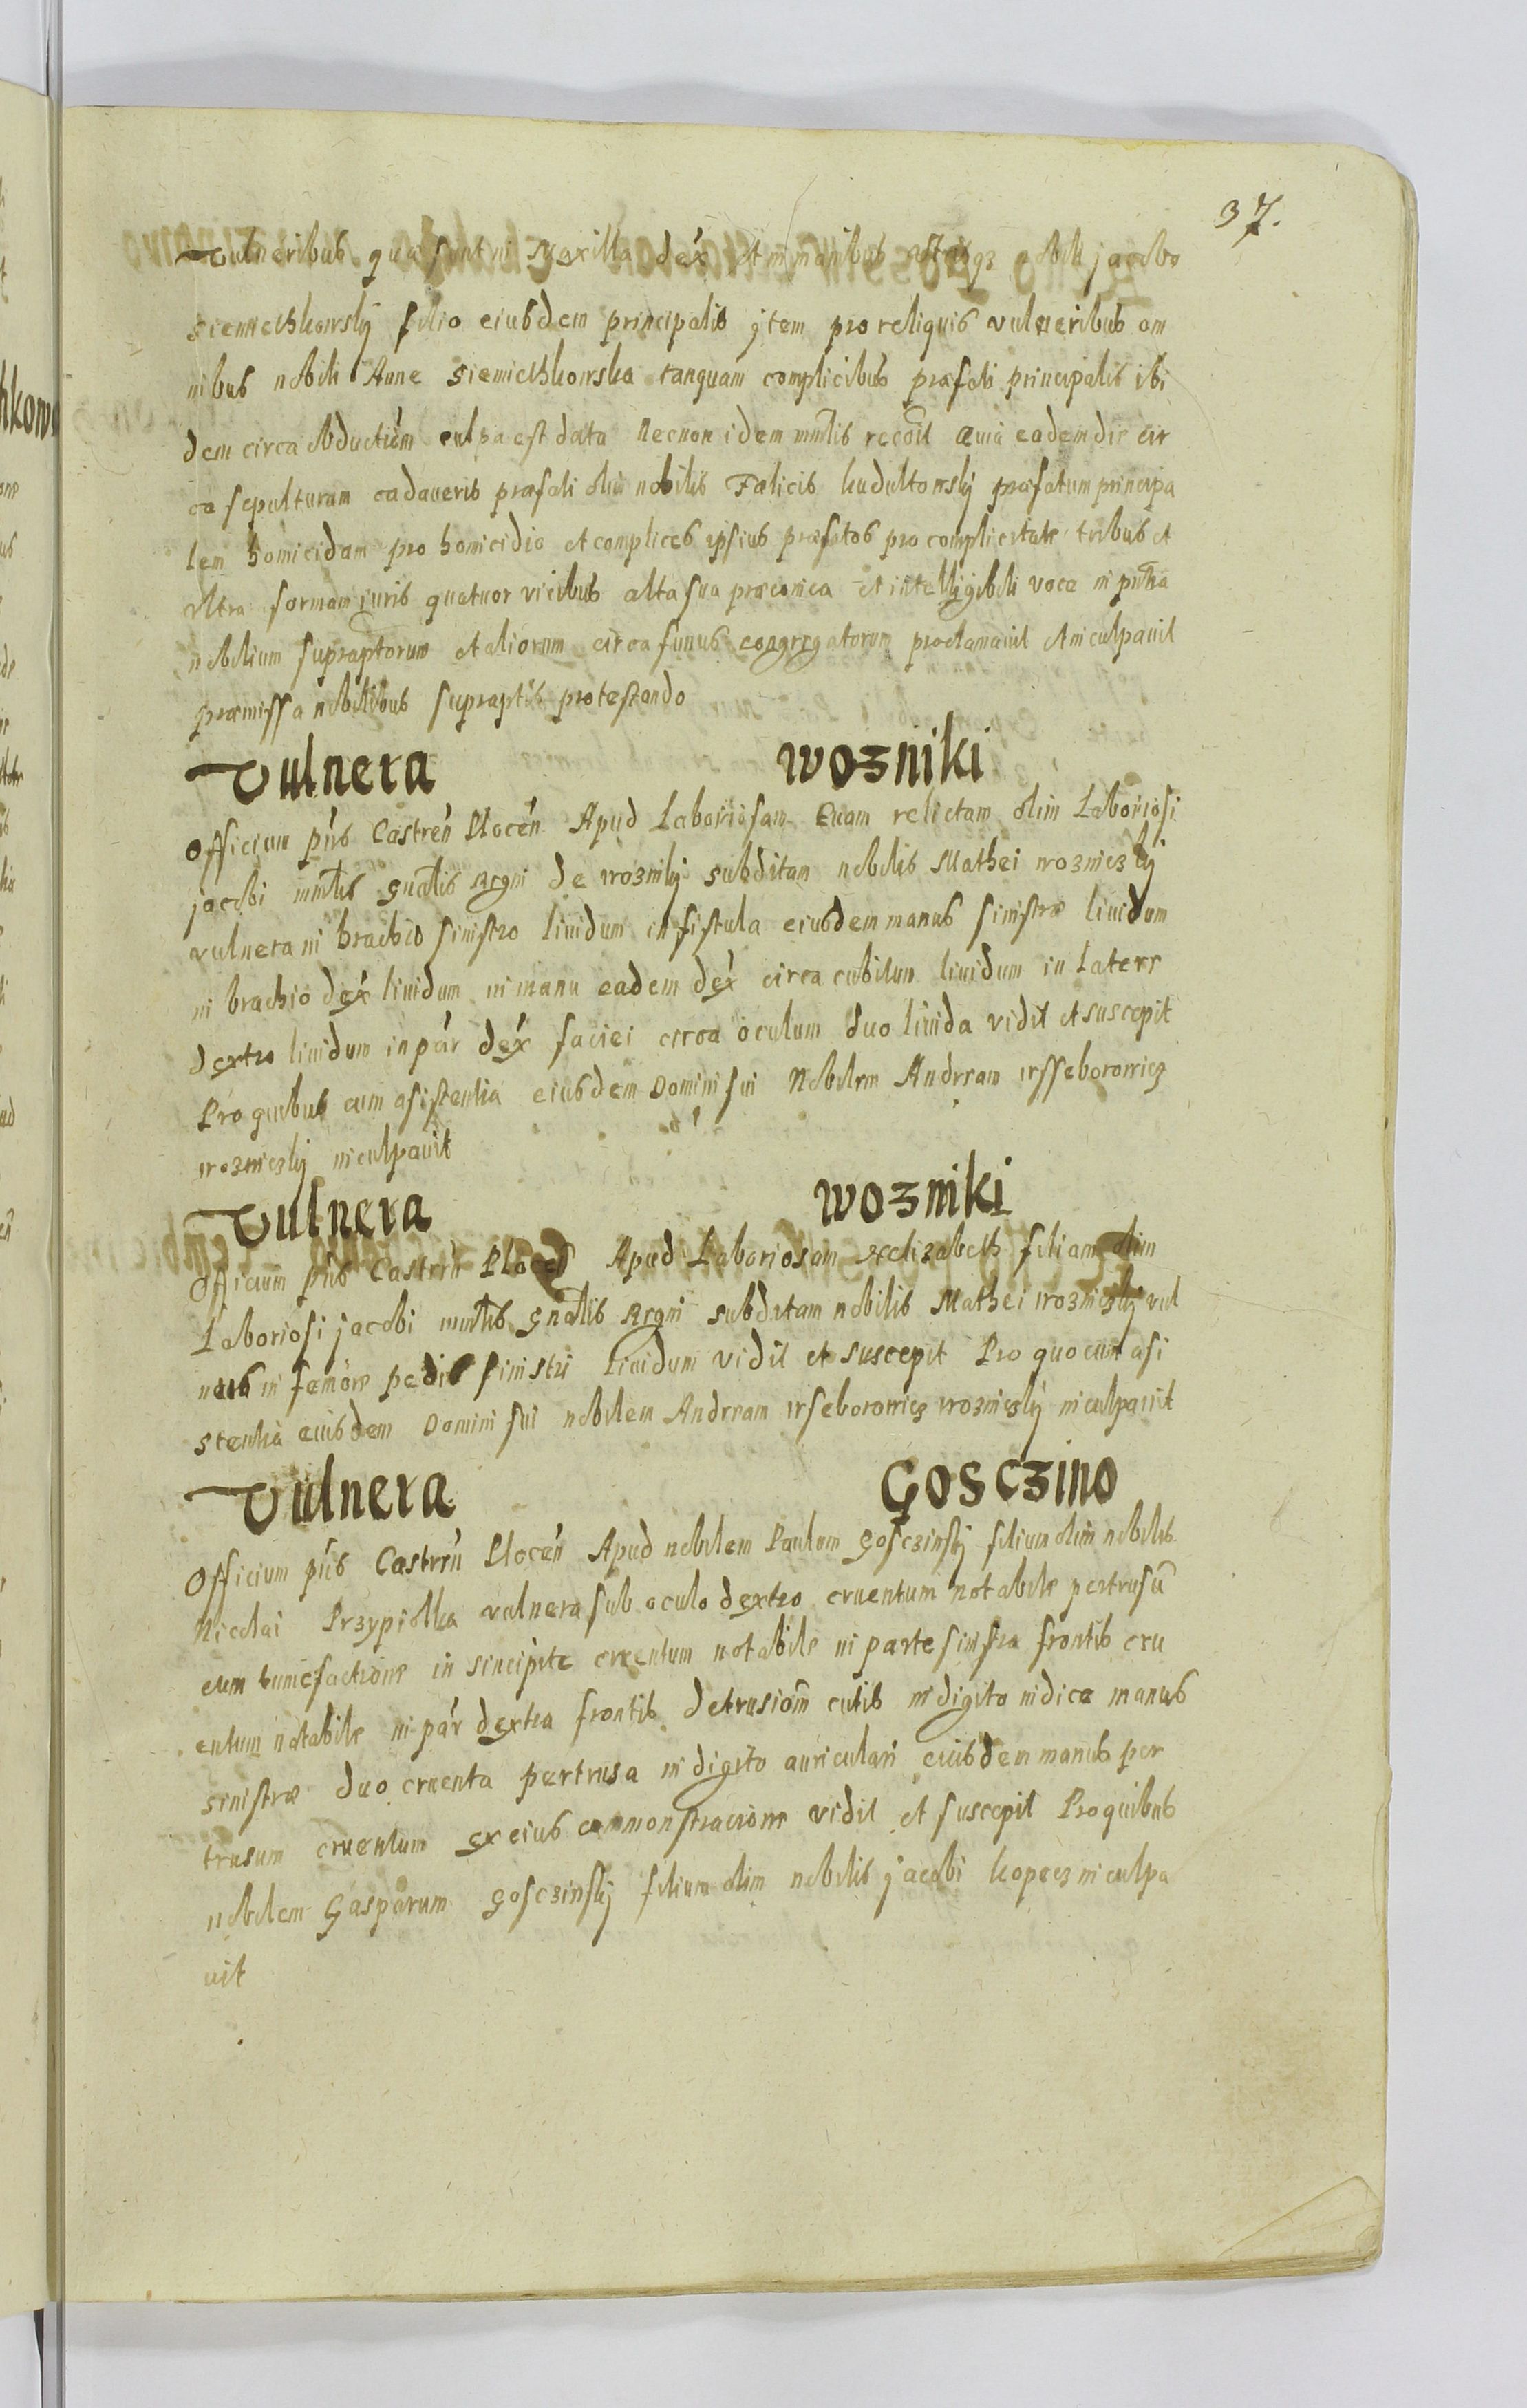 37.
Vulneribus quæ sunt in Maxilla dex et in manibus nobili jacobo
siemiethkowskÿ filio eiusdem principalis ytem pro reliquis vulneribus om
nibus nobili Anne Siemiethkowska tanquam complicibus præfati principalis ibi
dem circa obductium culpa est data Necnon idem mnlis recoil Quia eadem die cir
ca sepulturam cadaveris præfati olim nobilis Fælicis kudultowskÿ præfatum principa
lem homicidam pro homicidio et complices ipsius præfatos pro complicitate tribus et
vltra formam iuris quatuor vicibus alta sua præconica et intelligibili voce in pntia
nobilium supraptorum et aliorum circa funus congregatorum proclamauit et inculpauit
præmissa nobilibus supraptis protestando
Vulnera wozniki
Officium pns Castren Plocen Apud Laboriosam Euam relictam olim Laboriosi
jacobi mnlis gnalis Regni de woznikÿ subditam nobilis Mathei woznicskÿ
vulnera in brachio sinistro liuidum in fistula eiusdem manus sinistræ liuidum
in brachio dex liuidum in manu eadem dex circa cubitum liuidum in Latere
dextro liuidum in par dex faciei circa oculum duo liuida vidit et suscepit
Pro quibus cum asistentia eiusdem Domini sui Nobilem Andream wsseborowicz
woznicskÿ inculpauit
Vulnera wozniki
Officium pns Castren Plocen Apud Laboriosam Helizabeth filiam olim
Laboriosi jacobi mnlis gnalis Regni subditam nobilis Mathei woznicskÿ vul
nera in femore pedis sinistri liuidum vidit et suscepit Pro quo cum asi
stentia eiusdem Domini sui nobilem Andream wseborowicz woznicskÿ inculpauit
Vulnera Gosczino
Officium pns Castren Plocen Apud nobilem Paulum Gosczinskÿ filium olim nobilis
Nicolai Przypiolka vulnera sub oculo dextro cruentum notabile pertrusu
cum tumefactione in sincipite cruentum notabile in parte sinistra frontis cru
entum notabile in par dextra frontis detrusiom cutis in digito indice manus
sinistræ duo cruenta pertrusa in digito auriculari eiusdem manus per
trusum cruentum ex eius commonstracione vidit et suscepit Pro quibus
nobilem Gasparum Gosczinskÿ filium olim nobilis jacobi kopecz inculpa
uit